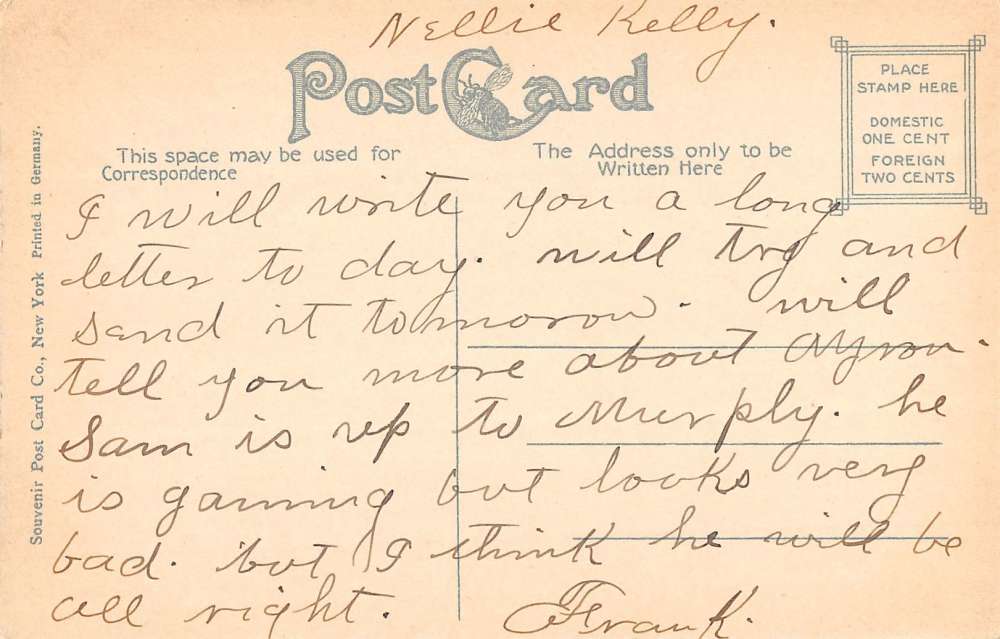 Nellie Kelly.
Post Card
PLACE
STAMP HERE
DOMESTIC
ONE CENT
FOREIGN
TWO CENTS
This space may be used for
Correspondence
The Address only to be
Written Here
I will write you a long
letter to day. will try and
send it tomorow. will
tell you more about Myron.
Sam is up to Murphy. he
is gaining but looks very
bad. but I think he will be
all right. Frank.
Souvenir Post Card Co., New York Printed in Germany.